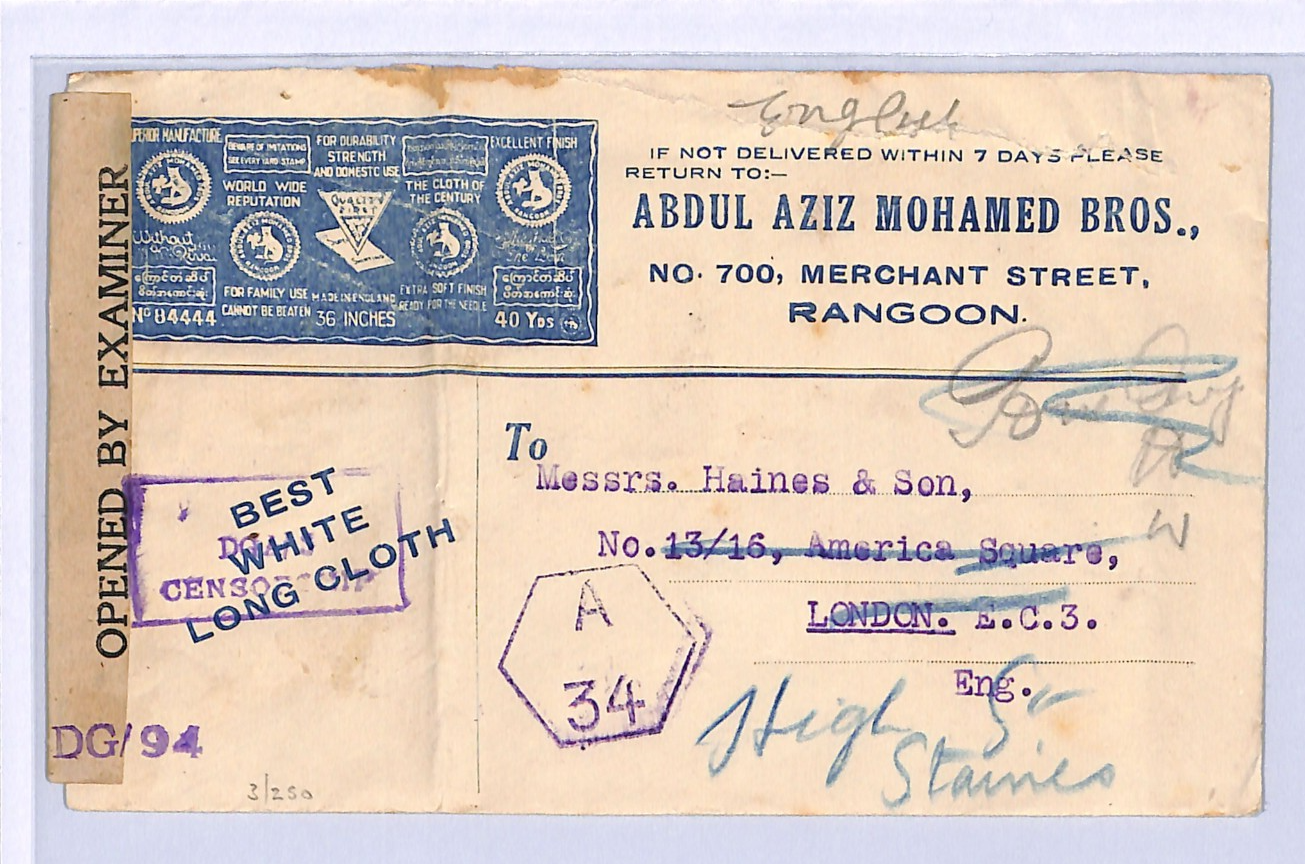 OPENED BY EXAMINER
DG/94
BEWARE OF IMITATIONS
SEE EVERY YARD STAMP
FOR DURABILITY
STRENGTH
AND DOMESTC USE
EXCELLENT FINISH
WORLD WIDE
REPUTATION
QUALITY
FIRST
THE CLOTH OF
THE CENTURY
RANGOON
Without
FOR FAMILY USE
CANNOT BE BEATEN
MADE IN ENGLAND
36 INCHES
EXTRA SOFT FINISH
READY FOR THE NEEDLE
No 84444
40 YDS
IF NOT DELIVERED WITHIN 7 DAYS PLEASE
RETURN TO:—
ABDUL AZIZ MOHAMED BROS.,
NO. 700, MERCHANT STREET,
RANGOON.
BEST
WHITE
LONG CLOTH
To
Messrs. Haines & Son,
No. 13/16, America Square,
LONDON. E.C.3.
Eng.
W
A
34
High St
Staines
3/250